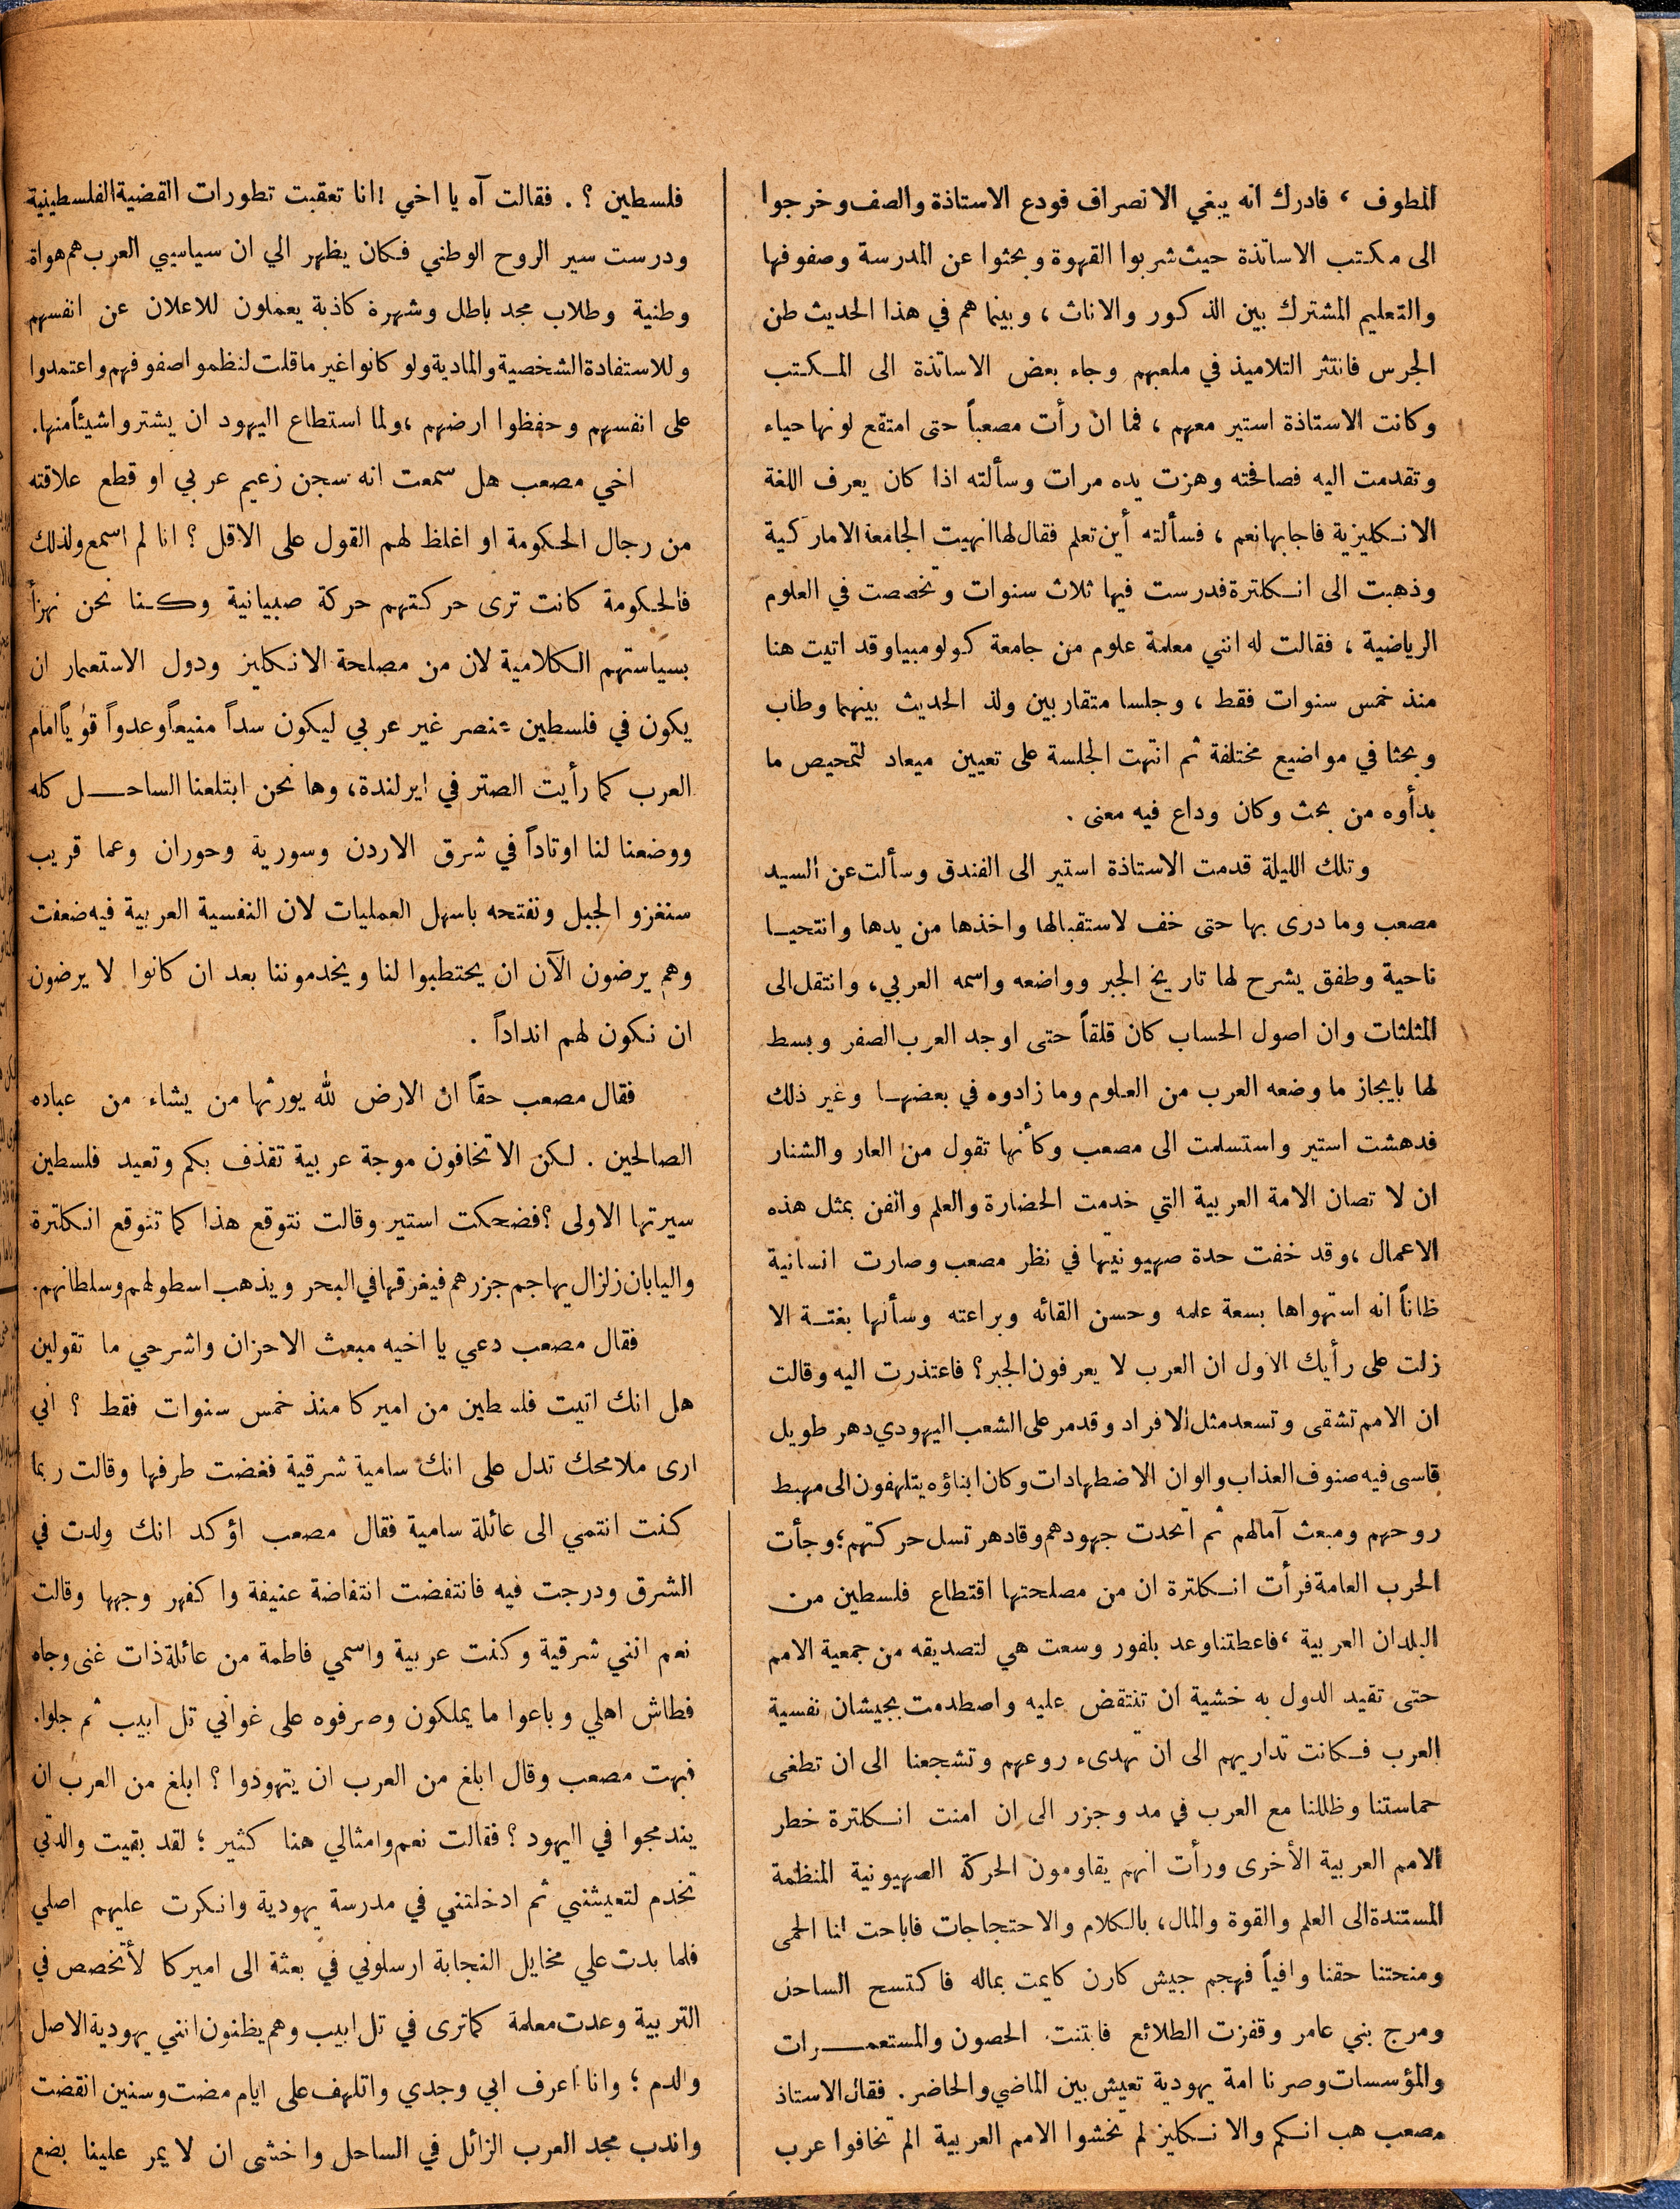 المطوف ، فادرك انه يبغي الانصراف فودع الاستاذة والصف وخرجوا
الى مكتب الاساتذة حيث شربوا القهوة وبحثوا عن المدرسة وصفوفها
والتعليم المشترك بين الذكور والاناث ، وبينما هم في هذا الحديث طن
الجرس فانتثر التلاميذ في ملعبهم وجاء بعض الاساتذة الى المكتب
وكانت الاستاذة استير معهم ، فما ان رأت مصعباً حتى امتقع لونها حياء
وتقدمت اليه فصافحته وهزت يده مرات وسألته اذا كان يعرف اللغة
الانكليزية فاجابها نعم ، فسألته أين تعلم فقال لها انهيت الجامعة الاماركية
وذهبت الى انكلترة فدرست فيها ثلاث سنوات وتخصصت في العلوم
الرياضية ، فقالت له انني معلمة علوم من جامعة كولومبيا وقد اتيت هنا
منذ خمس سنوات فقط ، وجلسا متقاربين ولذ الحديث بينهما وطاب
وبحثا في مواضيع مختلفة ثم انتهت الجلسة على تعيين ميعاد لتمحيص ما
بدأوه من بحث وكان وداع فيه معنى .
وتلك الليلة قدمت الاستاذة استير الى الفندق وسألت عن السيد
مصعب وما درى بها حتى خف لاستقبالها واخذها من يدها وانتحيا
ناحية وطفق يشرح لها تاريخ الجبر وواضعه واسمه العربي ، وانتقل الى
المثلثات وان اصول الحساب كان قلقاً حتى اوجد العرب الصفر وبسط
لها بايجاز ما وضعه العرب من العلوم وما زادوه في بعضها وغير ذلك
فدهشت استير واستسلمت الى مصعب وكأنها تقول من العار والشنار
ان لا تصان الامة العربية التي خدمت الحضارة والعلم والفن بمثل هذه
الاعمال ، وقد خفت حدة صهيونيتها في نظر مصعب وصارت انسانية
ظاناً انه استهواها بسعة علمه وحسن القائه وبراعته وسألها بغتة الا
زلت على رأيك الاول ان العرب لا يعرفون الجبر ؟ فاعتذرت اليه وقالت
ان الامم تشقى وتسعد مثل الافراد وقد مر على الشعب اليهودي دهر طويل
قاسى فيه صنوف العذاب والوان الاضطهادات وكان ابناؤه يتلهفون الى مهبط
روحهم ومبعث آمالهم ثم اتحدت جهودهم وقاد هرتسل حركتهم ؛ وجأت
الحرب العامة فرأت انكلترة ان من مصلحتها اقتطاع فلسطين من
البلدان العربية ، فاعطتنا وعد بلفور وسعت هي لتصديقه من جمعية الامم
حتى تقيد الدول به خشية ان تنتقض عليه واصطدمت بجيشان نفسية
العرب فكانت تداريهم الى ان تهدىء روعهم وتشجعنا الى ان تطغى
حماستنا وظللنا مع العرب في مد وجزر الى ان امنت انكلترة خطر
الامم العربية الأخرى ورأت انهم يقاومون الحركة الصهيونية المنظمة
المستندة الى العلم والقوة والمال ، بالكلام والاحتجاجات فاباحت لنا الحمى
ومنحتنا حقنا وافياً فهجم جيش كارن كايمت بماله فاكتسح الساحل
ومرج بني عامر وقفزت الطلائع فابتنت الحصون والمستعمرات
والمؤسسات وصرنا امة يهودية تعيش بين الماضي والحاضر . فقال الاستاذ
مصعب هب انكم والانكليز لم تخشوا الامم العربية الم تخافوا عرب
فلسطين ؟ . فقالت آه يا اخي ! انا تعقبت تطورات القضية الفلسطينية
ودرست سير الروح الوطني فكان يظهر الي ان سياسيي العرب هم هواة
وطنية وطلاب مجد باطل وشهرة كاذبة يعملون للاعلان عن انفسهم
وللاستفادة الشخصية والمادية ولو كانوا غير ما قلت لنظموا صفوفهم واعتمدوا
على انفسهم وحفظوا ارضهم ، ولما استطاع اليهود ان يشتروا شيئاً منها .
اخي مصعب هل سمعت انه سجن زعيم عربي او قطع علاقته
من رجال الحكومة او اغلظ لهم القول على الاقل ؟ انا لم اسمع ولذلك
فالحكومة كانت ترى حركتهم حركة صبيانية وكنا نحن نهزأ
بسياستهم الكلامية لان من مصلحة الانكليز ودول الاستعمار ان
يكون في فلسطين عنصر غير عربي ليكون سداً منيعاً وعدواً قوياً امام
العرب كما رأيت الصتر في ايرلندة ، وها نحن ابتلعنا الساحل كله
ووضعنا لنا اوتاداً في شرق الاردن وسورية وحوران وعما قريب
سنغزو الجبل ونفتحه باسهل العمليات لان النفسية العربية فيه ضعفت
وهم يرضون الآن ان يحتطبوا لنا ويخدموننا بعد ان كانوا لا يرضون
ان نكون لهم انداداً .
فقال مصعب حقاً ان الارض لله يورثها من يشاء من عباده
الصالحين . لكن الا تخافون موجة عربية تقذف بكم وتعيد فلسطين
سيرتها الاولى ؟ فضحكت استير وقالت نتوقع هذا كما تتوقع انكلترة
واليابان زلزال يهاجم جزرهم فيغرقها في البحر ويذهب اسطولهم وسلطانهم .
فقال مصعب دعي يا اخيه مبعث الاحزان واشرحي ما تقولين
هل انك اتيت فلسطين من اميركا منذ خمس سنوات فقط ؟ اني
ارى ملامحك تدل على انك سامية شرقية فغضت طرفها وقالت ربما
كنت انتمي الى عائلة سامية فقال مصعب اؤكد انك ولدت في
الشرق ودرجت فيه فانتفضت انتفاضة عنيفة واكفهر وجهها وقالت
نعم انني شرقية وكنت عربية واسمي فاطمة من عائلة ذات غنى وجاه
فطاش اهلي وباعوا ما يملكون وصرفوه على غواني تل ابيب ثم جلوا .
فبهت مصعب وقال ابلغ من العرب ان يتهودوا ؟ ابلغ من العرب ان
يندمجوا في اليهود ؟ فقالت نعم وامثالي هنا كثير ؛ لقد بقيت والدتي
تخدم لتعيشني ثم ادخلتني في مدرسة يهودية وانكرت عليهم اصلي
فلما بدت علي مخايل النجابة ارسلوني في بعثة الى اميركا لأتخصص في
التربية وعدت معلمة كما ترى في تل ابيب وهم يظنون انني يهودية الاصل
والدم ؛ وانا اعرف ابي وجدي واتلهف على ايام مضت وسنين انقضت
واندب مجد العرب الزائل في الساحل واخشى ان لا يمر علينا بضع